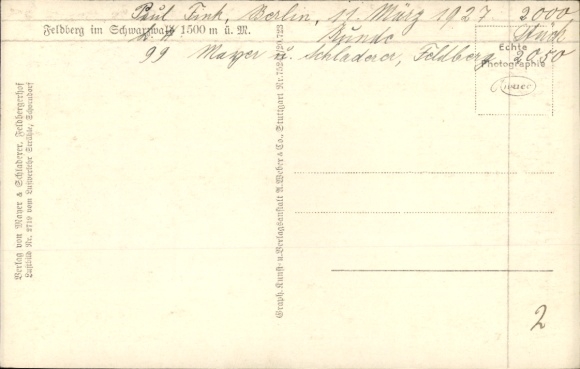 Paul Fink, Berlin, 11. März 1927 2000
Feldberg im Schwarzwald 1500 m ü. M.
Runde Stück
99 Mayer u. Schladerer, Feldberg 2000
Echte
Photographie
Verlag von Mayer & Schladerer, Feldbergerhof
Luftbild Nr. 2719 vom Luftverkehr Strähle, Schorndorf
Graph. Kunst- u. Verlagsanstalt A. Weber & Co., Stuttgart
2